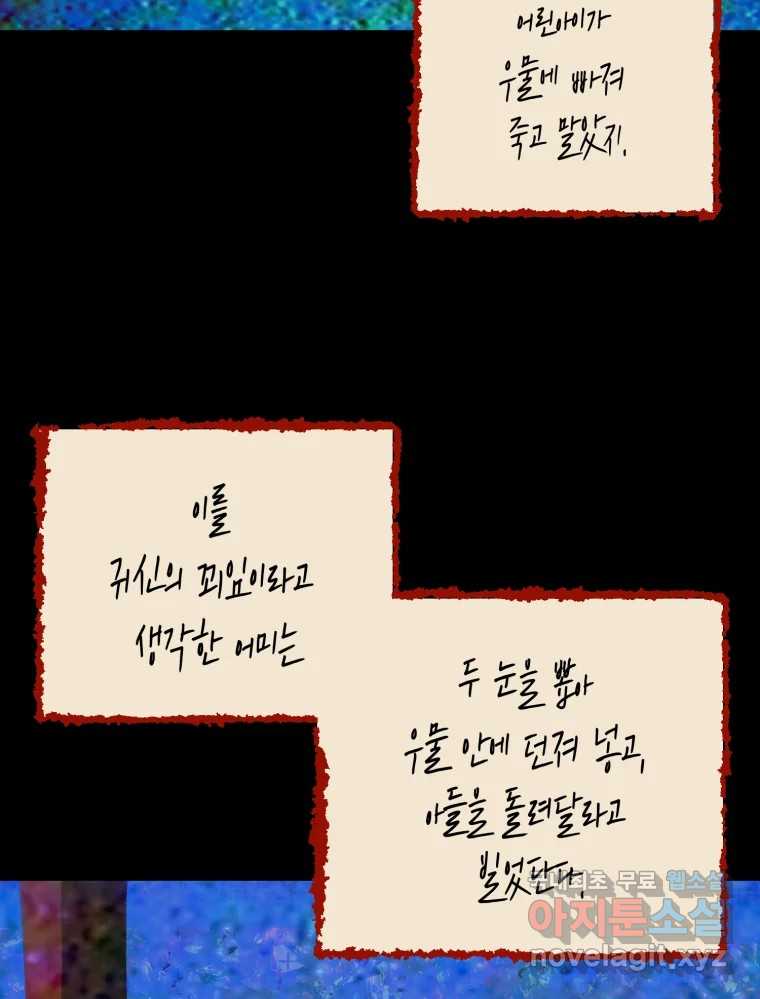 어린아이가
우물에 빠져
죽고 말았지.
이를
귀신의 꾀임이라고
생각한 어미는
두 눈을 뽑아
우물 안에 던져 넣고,
아들을 돌려달라고
빌었단다.
국내최초 무료 웹소설
아지툰소설
novelagit.xyz